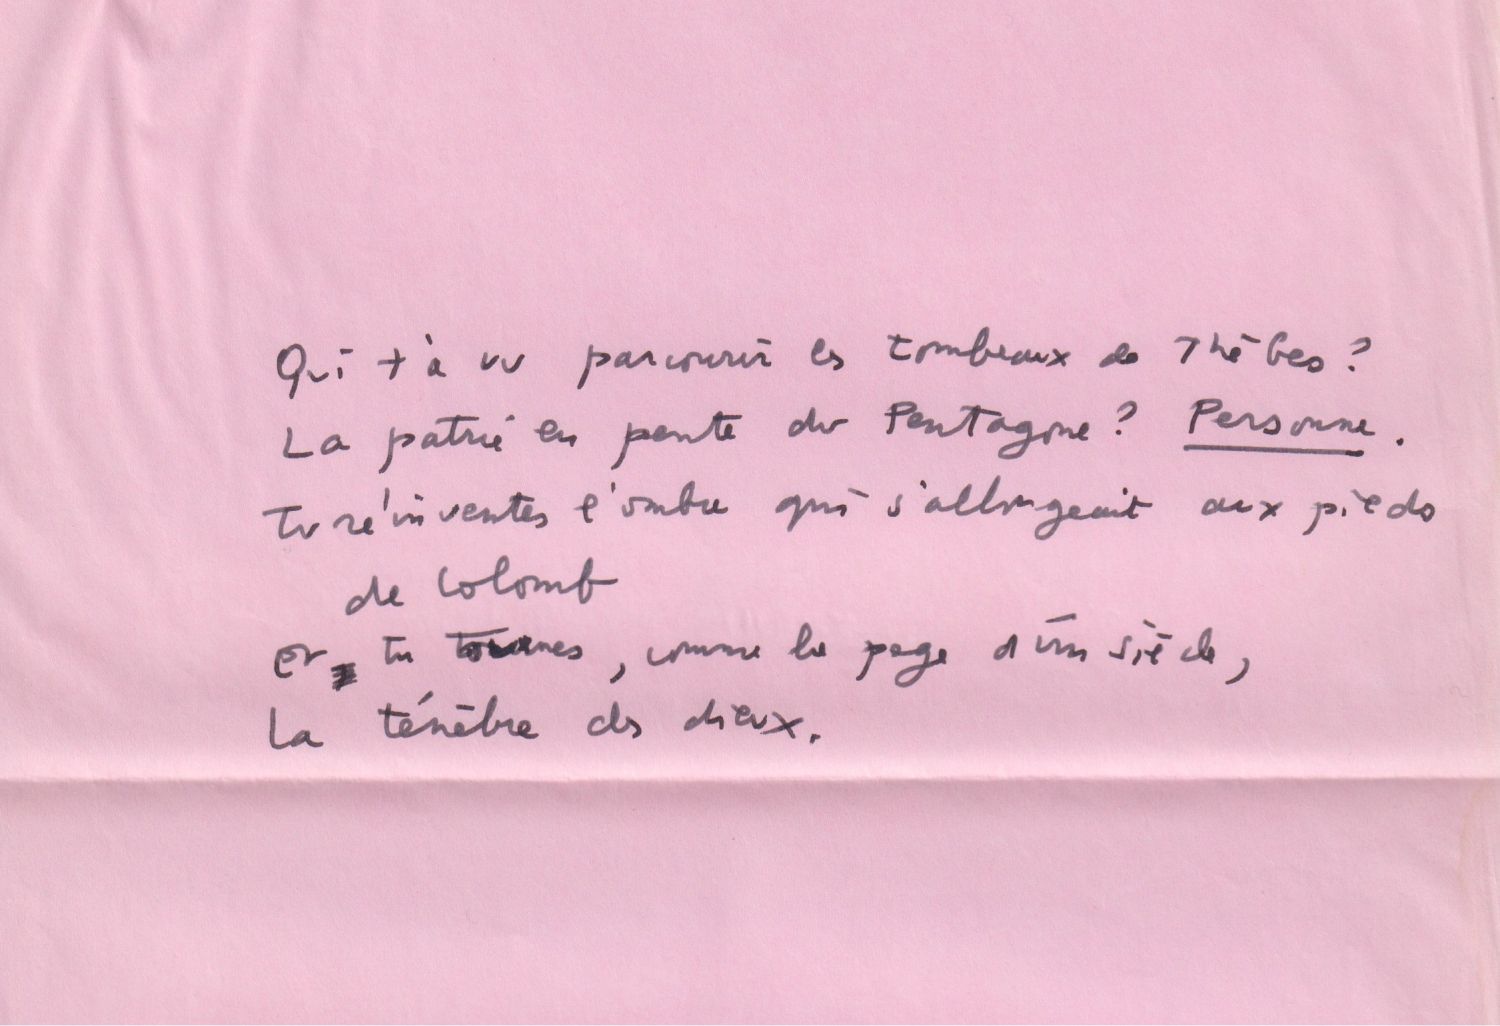 Qui t'a vu parcourir les tombeaux de Thèbes ?
La patrie en pente du Pentagone ? Personne.
Tu réinventes l'ombre qui s'allongeait aux pieds
de Colomb
Et tu tournes, comme la page d'un siècle,
La ténèbre des dieux.